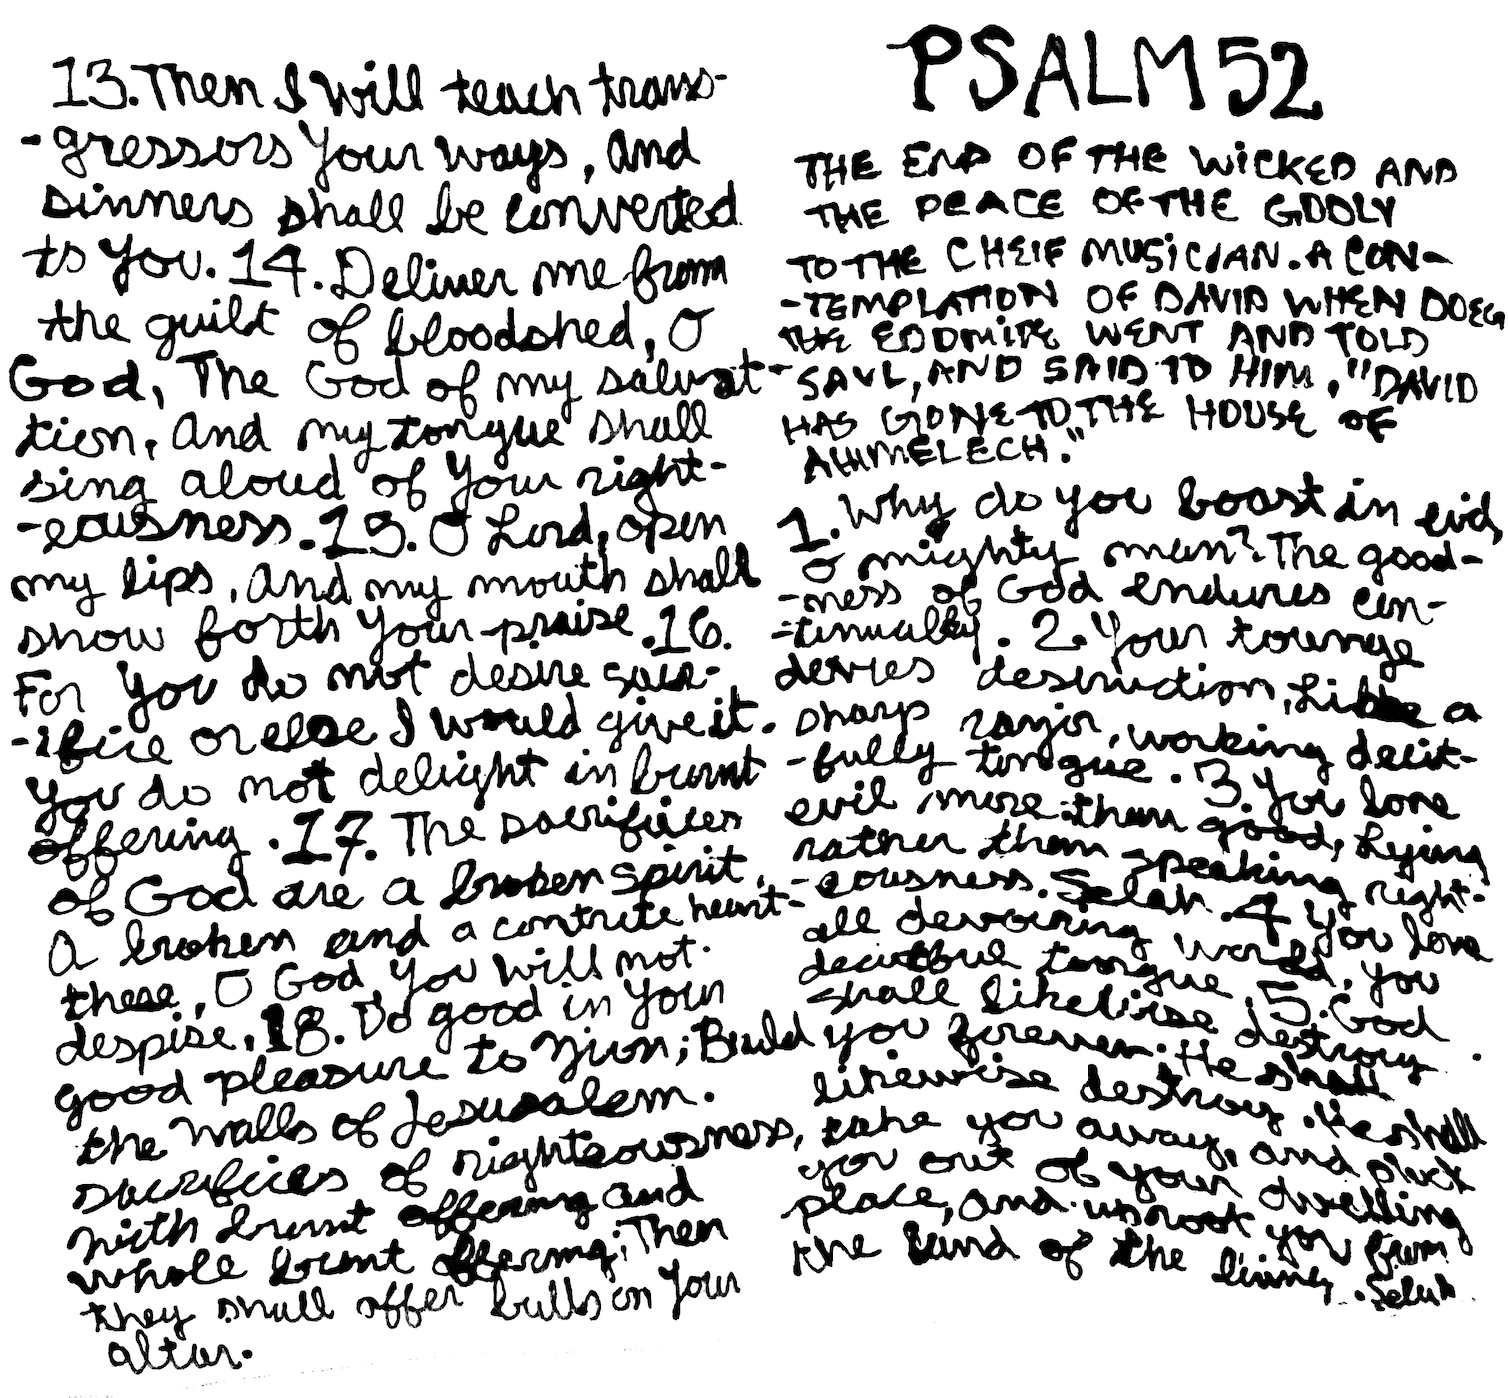 13. Then I will teach trans-
-gressors Your ways, and
sinners shall be converted
to You. 14. Deliver me from
the guilt of bloodshed, O
God, The God of my salvat-
tion, and my tongue shall
sing aloud of Your right-
-eousness. 15. O Lord, open
my lips, and my mouth shall
show forth Your praise. 16.
For You do not desire sacr-
-ifice or else I would give it.
You do not delight in burnt
offering. 17. The sacrifices
of God are a broken spirit,
A broken and a contrite heart-
these, O God, You will not
despise. 18. Do good in Your
good pleasure to Zion; Build
the walls of Jesusalem.
sacrifices of righteousness,
with burnt offering and
whole burnt offering; Then
they shall offer bulls on Your
altar.
PSALM 52
THE END OF THE WICKED AND
THE PEACE OF THE GODLY
TO THE CHEIF MUSICIAN. A CON-
-TEMPLATION OF DAVID WHEN DOEG
THE EDOMITE WENT AND TOLD
SAUL, AND SAID TO HIM, "DAVID
HAS GONE TO THE HOUSE OF
AHIMELECH."
1. Why do you boast in evil,
O mighty man? The good-
-ness of God endures con-
-tinually. 2. Your tounge
devies destruction, Like a
sharp razor, working decit-
-fully tongue. 3. You love
evil more than good, Lying
rather than speaking right-
-eousness. Selah. 4 You love
all devouring words, You
deceitful tongue. 5. God
shall likewise destroy
you forever. He shall
likewise destroy. He shall
take you away, and pluck
you out of your dwelling
place, and uproot you from
the land of the living. Selah